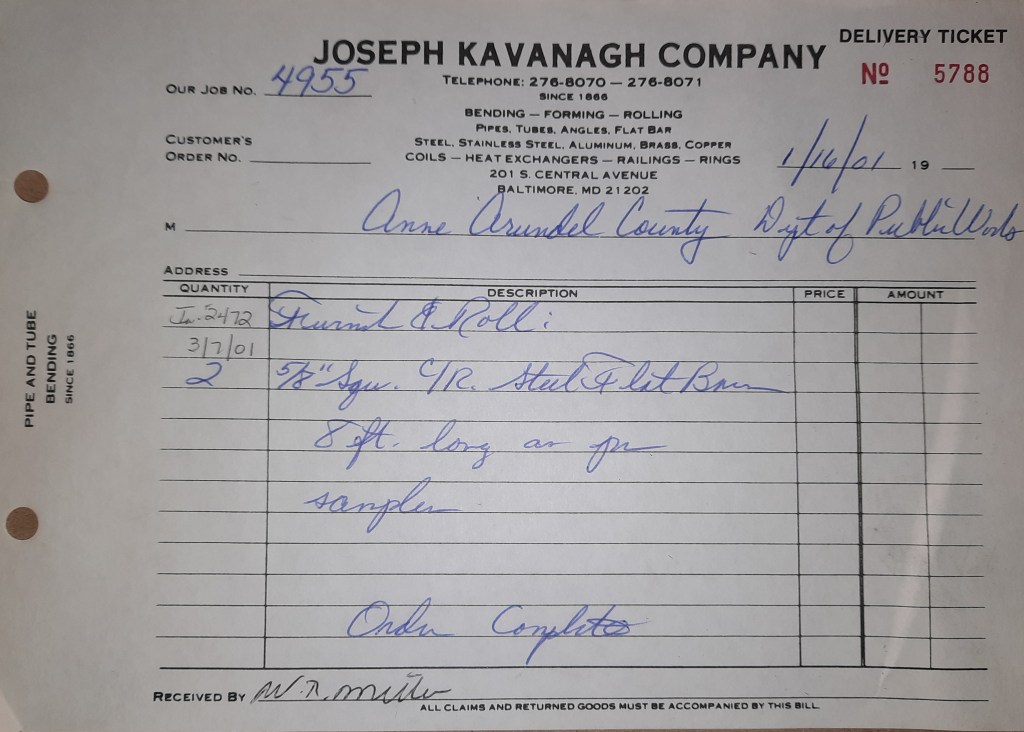 DELIVERY TICKET
JOSEPH KAVANAGH COMPANY
Nº 5788
OUR JOB NO. 4955
TELEPHONE: 276-8070 — 276-8071
SINCE 1866
BENDING — FORMING — ROLLING
PIPES, TUBES, ANGLES, FLAT BAR
STEEL, STAINLESS STEEL, ALUMINUM, BRASS, COPPER
CUSTOMER'S
ORDER NO.
COILS — HEAT EXCHANGERS — RAILINGS — RINGS
201 S. CENTRAL AVENUE
BALTIMORE, MD 21202
1/16/01 19
M Anne Arundel County Dept of Public Works
ADDRESS
QUANTITY DESCRIPTION PRICE AMOUNT
In. 2472 Furnish & Roll:
3/7/01
2 5/8" Squ. C/R. Steel Flat Bar
8 ft. long as per
samples
Order Complete
RECEIVED BY
ALL CLAIMS AND RETURNED GOODS MUST BE ACCOMPANIED BY THIS BILL
PIPE AND TUBE
BENDING
SINCE 1866